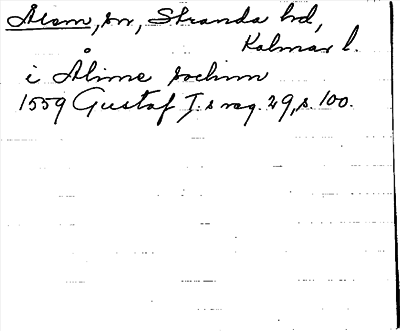 Ålem, sn, Stranda hd,
Kalmar l.
i Ålime sochnn
1559 Gustaf I.s reg. 29, s. 100.